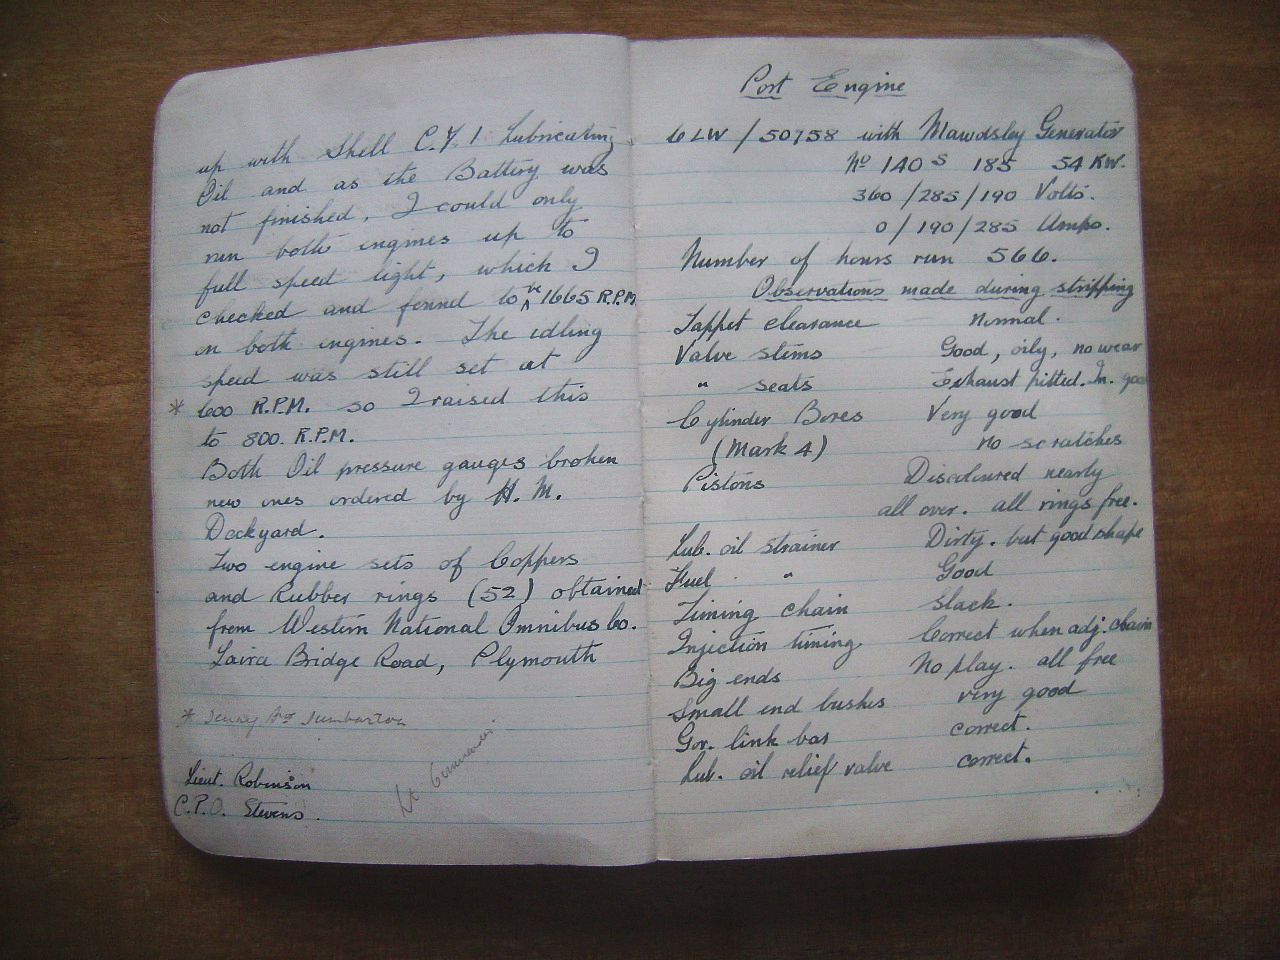 up with Shell C.Y. 1 Lubricating
Oil and as the Battery was
not finished, I could only
run both engines up to
full speed light, which I
checked and found to be 1665 R.P.M.
on both engines. The idling
speed was still set at
* 600 R.P.M. so I raised this
to 800. R.P.M.
Both Oil pressure gauges broken
new ones ordered by H. M.
Dockyard.
Two engine sets of Coppers
and Rubber rings (52) obtained
from Western National Omnibus Co.
Laira Bridge Road, Plymouth
*
Lt Commander
Lieut. Robinson
C.P.O. Stevens.
Port Engine
6LW / 50758 with Mawdsley Generator
No 140 S 185 54 KW.
360 / 285 / 190 Volts.
0 / 190 / 285 Amps.
Number of hours run 566.
Observations made during stripping
Tappet clearance normal.
Valve stems Good, oily, no wear
" seats Exhaust pitted. In. goo
Cylinder Bores Very good
(Mark 4) no scratches
Pistons Discoloured nearly
all over. all rings free.
Lub. oil strainer Dirty. but good shape
Fuel " Good
Timing chain slack.
Injection timing Correct when adj. chain
Big ends No play. all free
Small end bushes very good
Gov. link bar correct.
Lub. oil relief valve correct.